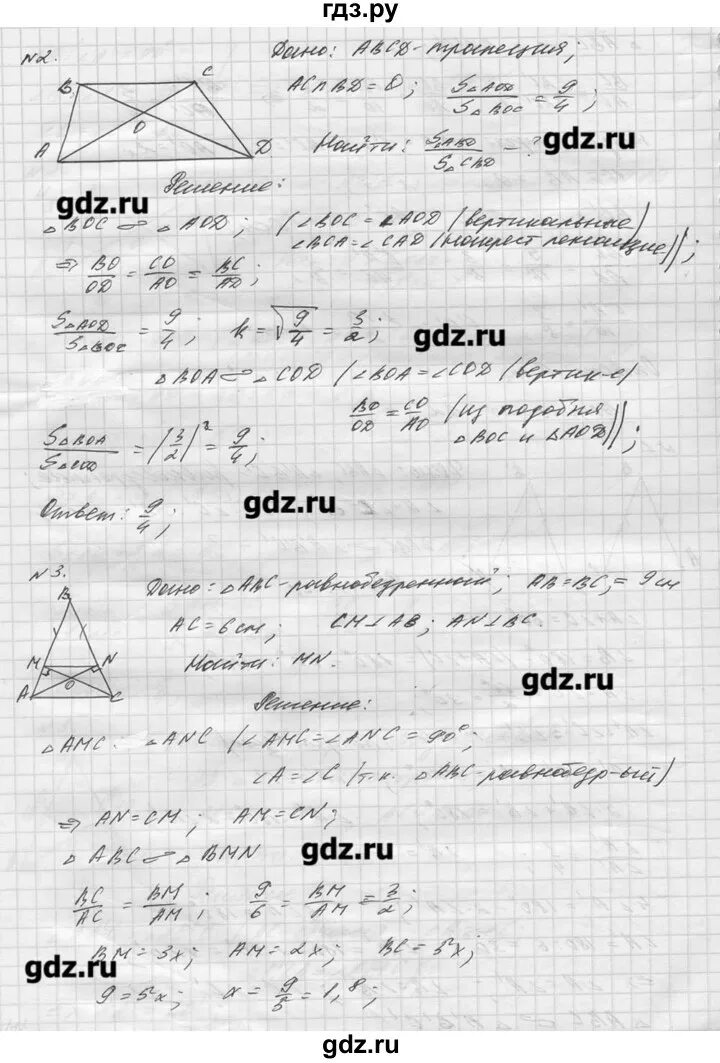 гдз.ру
N2.
Дано: ABCD-трапеция;
AC∩BD=O; S△AOD/S△BOC = 9/4;
Найти: S△ABO/S△CBD - ?
B C O A D
gdz.ru
Решение:
gdz.ru
△BOC ∞ △AOD; (∠BOC = ∠AOD (вертикальные)
∠BCA=∠CAD (накрест лежащие));
⇒ BO/OD = CO/AO = BC/AD;
S△AOD/S△BOC = 9/4; k=√9/4 = 3/2;
gdz.ru
△BOA ∞ △COD (∠BOA=∠COD (вертик-е)
BO/OD = CO/AO (из подобия
△BOC и △AOD));
S△BOA/S△COD = (3/2)² = 9/4;
Ответ: 9/4;
gdz.ru
N3.
Дано: △ABC-равнобедренный; AB=BC,=9см
AC=6см; CM⊥AB; AN⊥BC.
Найти: MN.
B M N O A C
gdz.ru
Решение:
△AMC. △ANC (∠AMC=∠ANC=90°;
∠A=∠C (т.к. △ABC-равнобедр-ый)
⇒ AN=CM; AM=CN;
△ABC ∞ △BMN
gdz.ru
BC/AC = BM/AM; 9/6 = BM/AM = 3/2;
BM=3x; AM=2x; BC=5x;
gdz.ru
9=5x; x = 9/5 = 1,8;
gdz.ru